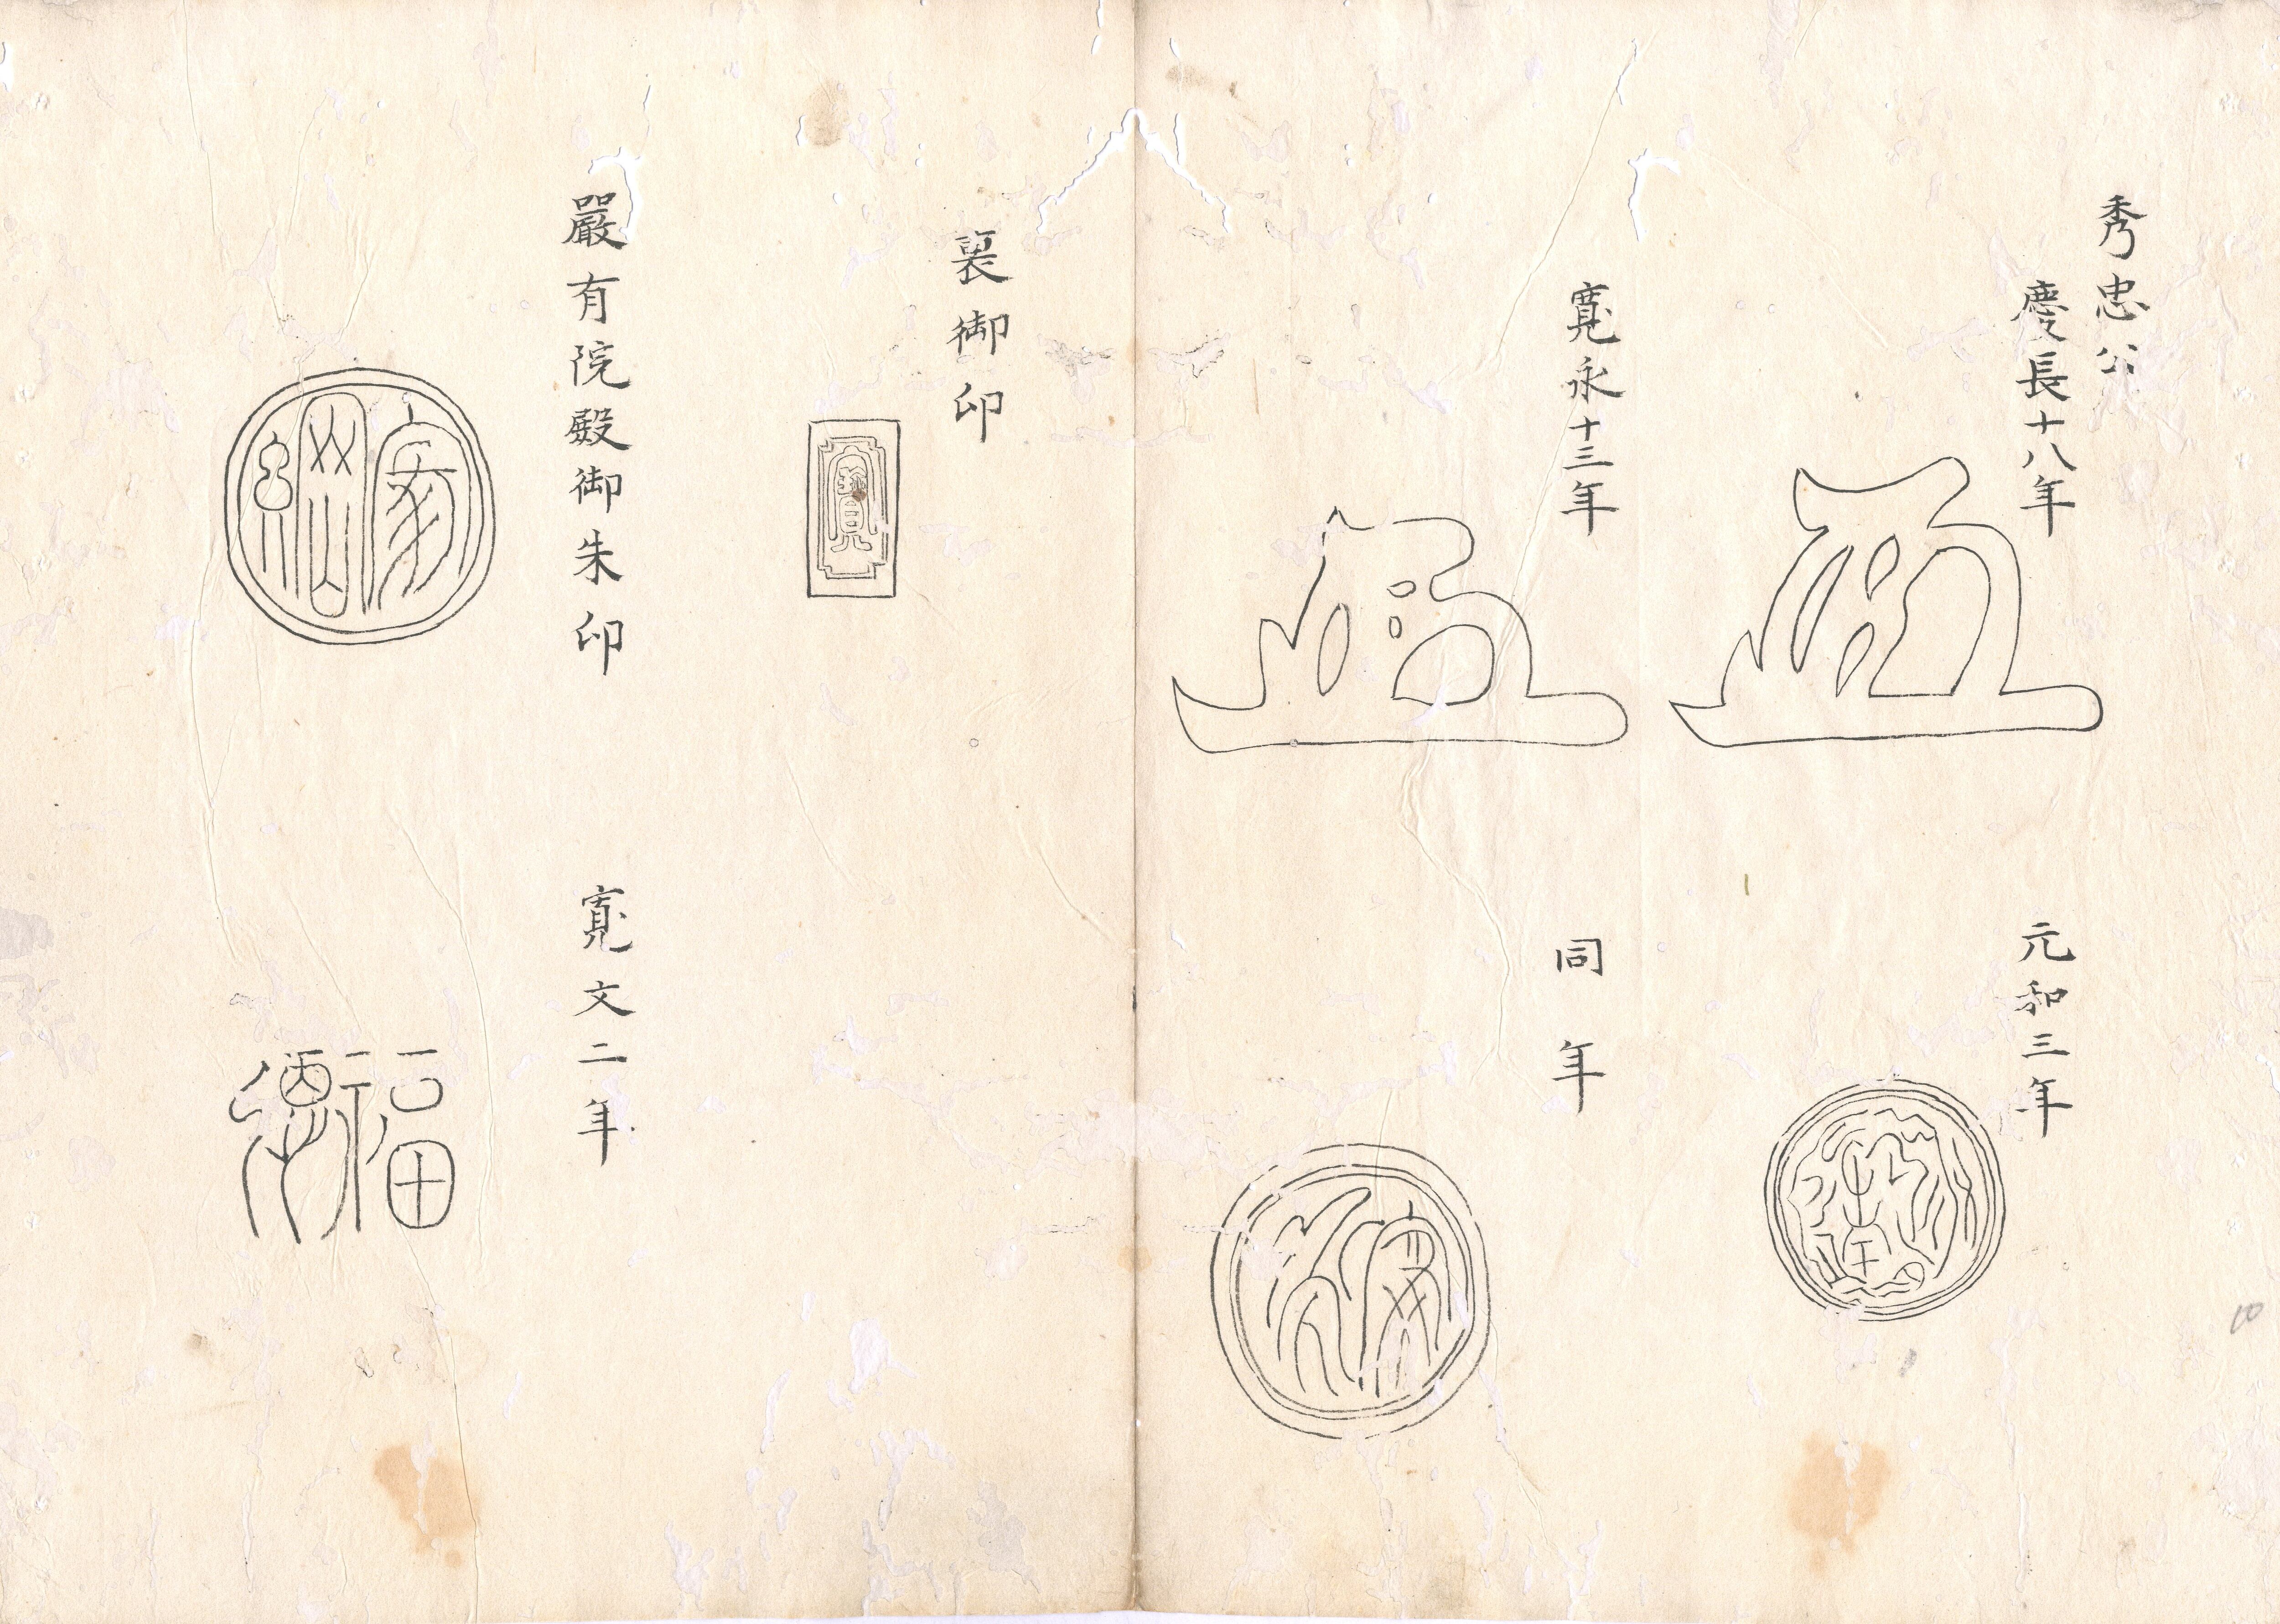 秀忠公
慶長十八年
元和三年
寛永十三年
同年
裏御印
寶
嚴有院殿御朱印
家綱
寛文二年
福德
10